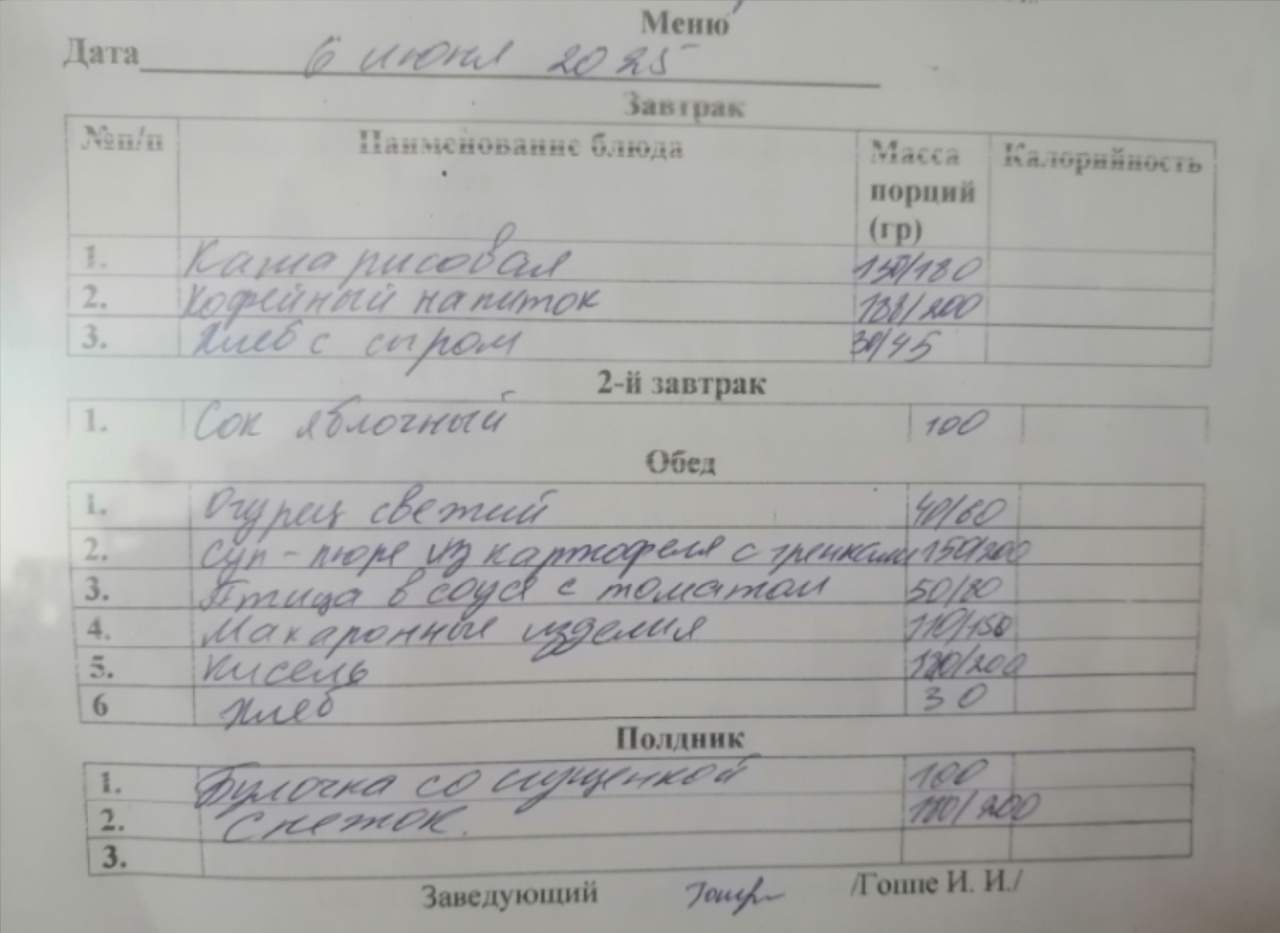 Меню
Дата 6 июня 2025
Завтрак
№п/п Наименование блюда Масса порций (гр) Калорийность
1. Каша рисовая 150/180
2. Кофейный напиток 188/200
3. Хлеб с сыром 30/45
2-й завтрак
1. Сок яблочный 100
Обед
1. Огурец свежий 40/60
2. Суп-пюре из картофеля с гренками 150/200
3. Птица в соусе с томатом 50/80
4. Макаронные изделия 110/150
5. Кисель 180/200
6 Хлеб 30
Полдник
1. Булочка со сгущенкой 100
2. Снежок. 180/200
3.
Заведующий /Гоппе И. И./